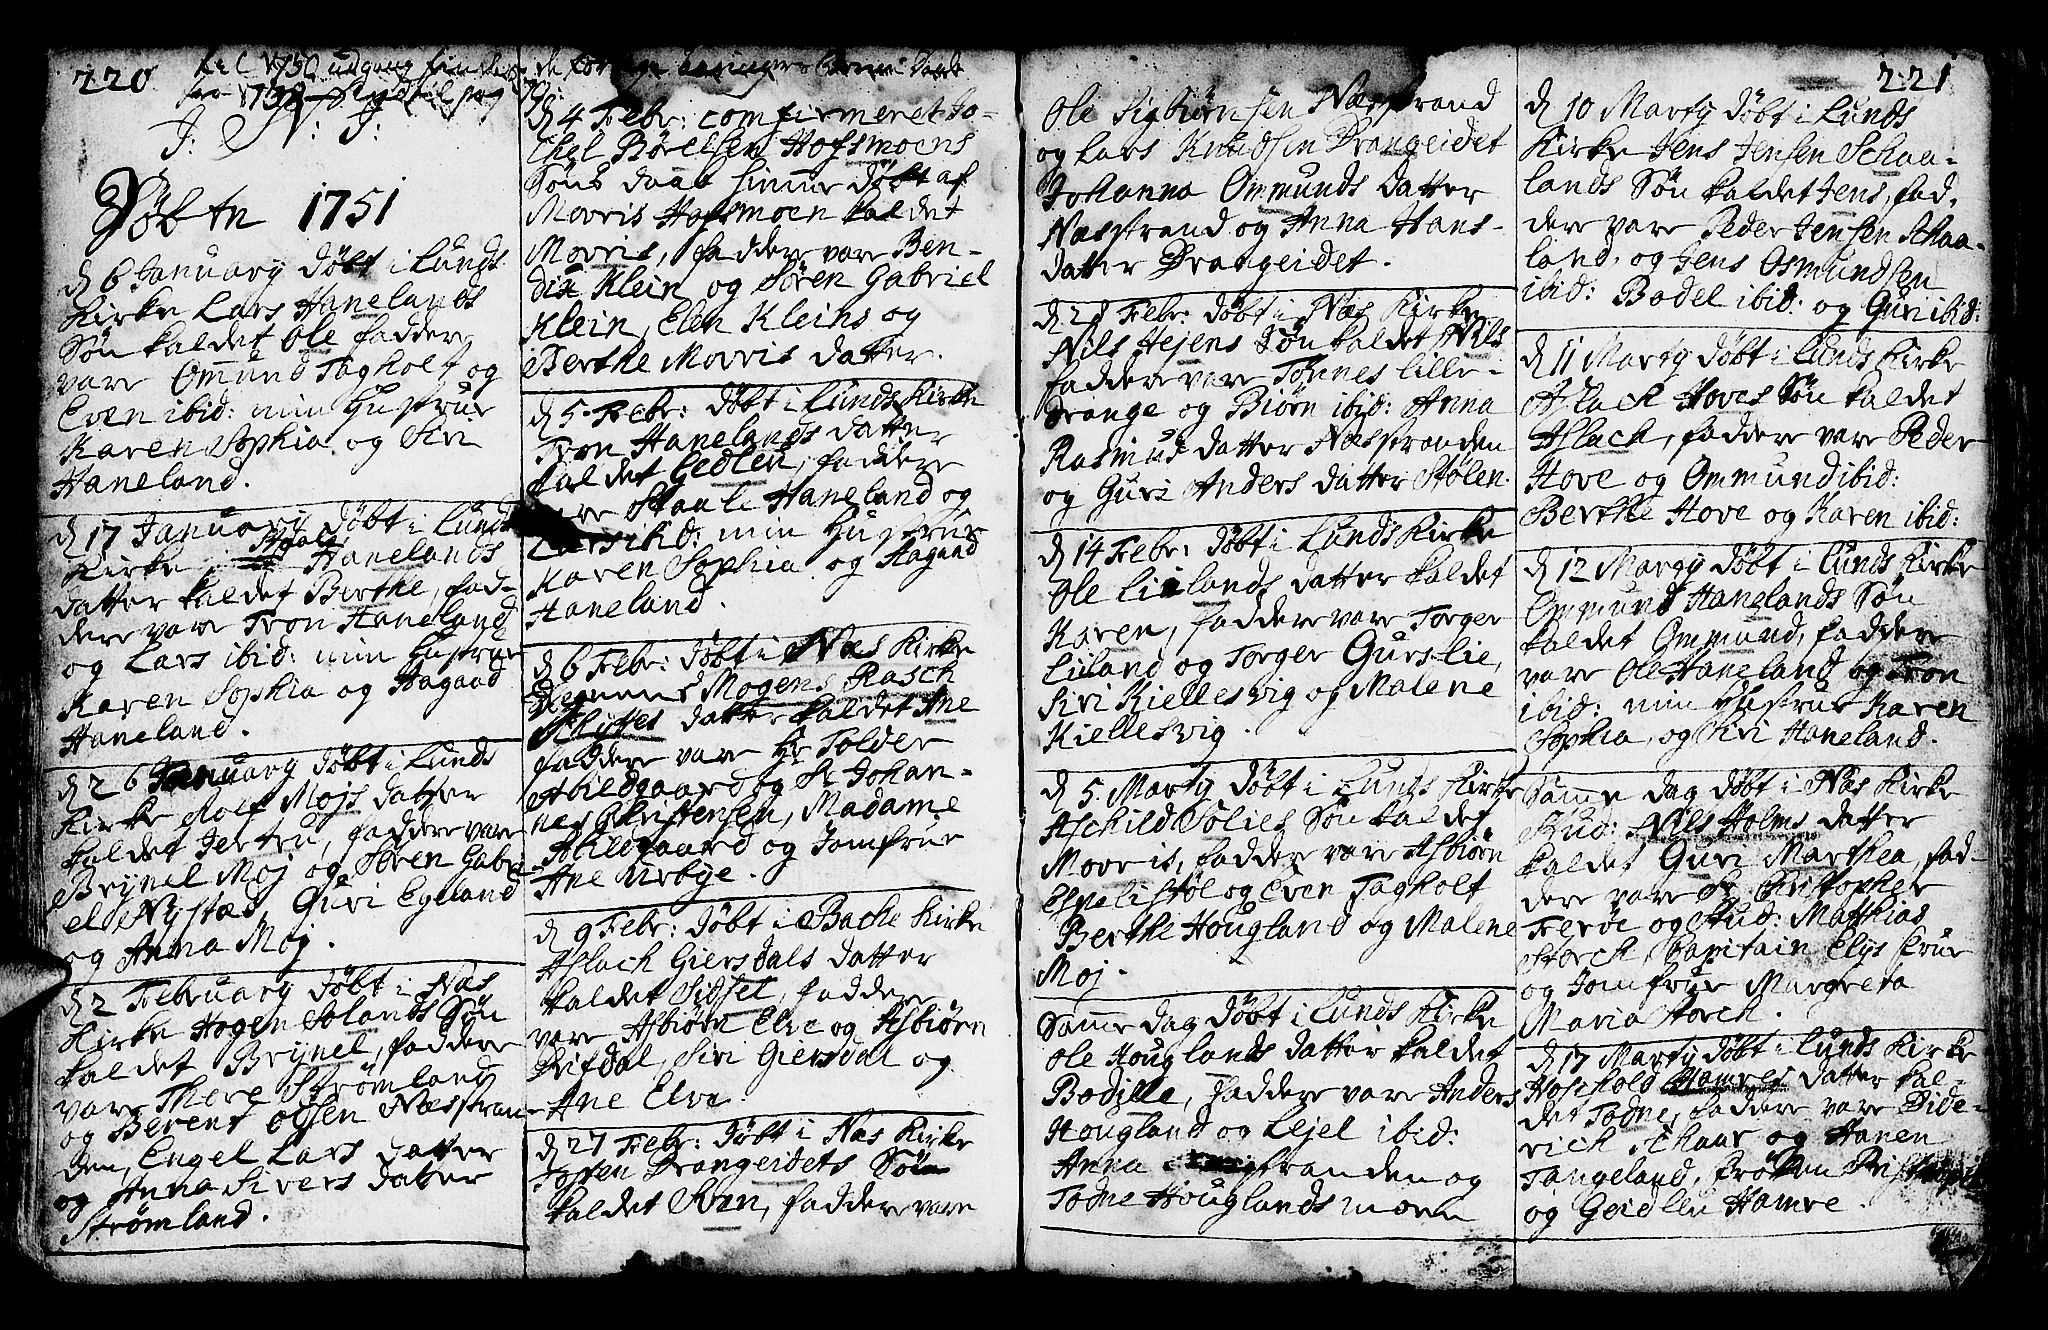 220
J: N: J:
Døbte 1751
d 6 January døbt i Lunds
Kirke Lars Hanelands
Søn kaldet Ole faddere
vare Omund Tagholt og
Even ibid: min Hustrue
Karen Sophia og Siri
Haneland.
d 17 January døbt i Lunds
Kirke Hanelands
datter kaldet Berthe, fad-
dere vare Tron Haneland
og Lars ibid: min Hustrue
Karen Sophia og Aagaad
Haneland.
d 26 January døbt i Lunds
Kirke Rolf Mojs datter
kaldet Jertru, faddere vare
Brynel Moj og Søren Gabri-
el Nystæd, Guri Egeland
og Anna Moj.
d 2 February døbt i Næs
Kirke Hogen Solands Søn
kaldet Brynel, faddere
vare There Strømland
og Berent Olsen Næsstran-
den, Engel Lars datter
og Anna Sivers datter
Strømland.
d 4 Febr: comfirmeret Jo-
chel Børelsen Hofsmoens
Søns daab hiemme døbt af
Morris Hofsmoen kaldet
Morris, faddere vare Ben-
dix Klein og Søren Gabriel
Klein, Elen Kleins og
Berthe Morris datter.
d 5 Febr: døbt i Lunds Kirke
Tron Hanelands datter
kaldet Gedleu, faddere
vare Staale Haneland og
Lars ibid: min Hustrue
Karen Sophia og Aagaad
Haneland.
d 6 Febr: døbt i Næs Kirke
Degnens Mogens Rasch
datter kaldet Ane
faddere vare Hr Tolder
Abildgaard og Sr Johan-
nes Christensen, Madame
Abildgaard og Jomfrue
Ane Urbye.
d 9 Febr: døbt i Bache Kirke
Aslach Giersdals datter
kaldet Sidsel, faddere
vare Asbiørn Elve og Asbiørn
Rifdal, Siri Giersdal og
Ane Elve
d 27 Febr: døbt i Næs Kirke
Tosten Drangeidets Søn
kaldet Sven, faddere vare
221
Ole Sigbiørnsen Næsstrand
og Lars Knudsen Drangeidet
Johanna Ommunds datter
Næsstrand og Anna Hans-
datter Drangeidet.
Febr: døbt i Næs Kirke
Nils Hejens Søn kaldet Nils
faddere vare Tønnes Lille-
Drange og Biørn ibid: Anna
Rasmus datter Næsstranden
og Guri Anders datter Stølen.
d 14 Febr: døbt i Lunds Kirke
Ole Liilands datter kaldet
Karen, faddere vare Torger
Liiland og Torger Gurslie,
Siri Kiellesvig og Malene
Kiellesvig.
d 5 Marty døbt i Lunds Kirke
Aschild Solies Søn kaldet
Moveis, faddere vare Asbiørn
Espelistøl og Even Tagholt
Berthe Hougland og Malene
Moj.
Samme dag døbt i Lunds Kirke
Ole Houglands datter kaldet
Bodille, faddere vare Anders
Hougland og Lejel ibid:
Anna stranden og
Todne Houglands moen
d 10 Marty døbt i Lunds
Kirke Jens Jensen Schaa-
lands Søn kaldet Jens, fad-
dere vare Peder Jensen Schaa-
land, og Jens Osmundsen
ibid: Bodel ibid: og Guri ibid:
d 11 Marty døbt i Lunds Kirke
Aslach Hoves Søn kaldet
Aslach, faddere vare Peder
Hove og Ommund ibid:
Berthe Hove og Karen ibid:
d 12 Marty døbt i Lunds Kirke
Ommund Hanelands Søn
kaldet Ommund, faddere
vare Ole Haneland og Tron
ibid: min Hustrue Karen
Sophia, og Siri Haneland.
Samme dag døbt i Næs Kirke
Stud: Nils Holms datter
kaldet Guri Marthea, fad-
dere vare Sr Christopher
Ferøe og Stud: Matthias
Storck, Capitain Elys Frue
og Jomfrue Margreta
Maria Storch.
d 17 Marty døbt i Lunds Kirke
Hoschold Hamres datter kal-
det Todne, faddere vare Dide-
rich Schaar og Hanen
Tangeland, Frøken
og Geidleu Hamre.